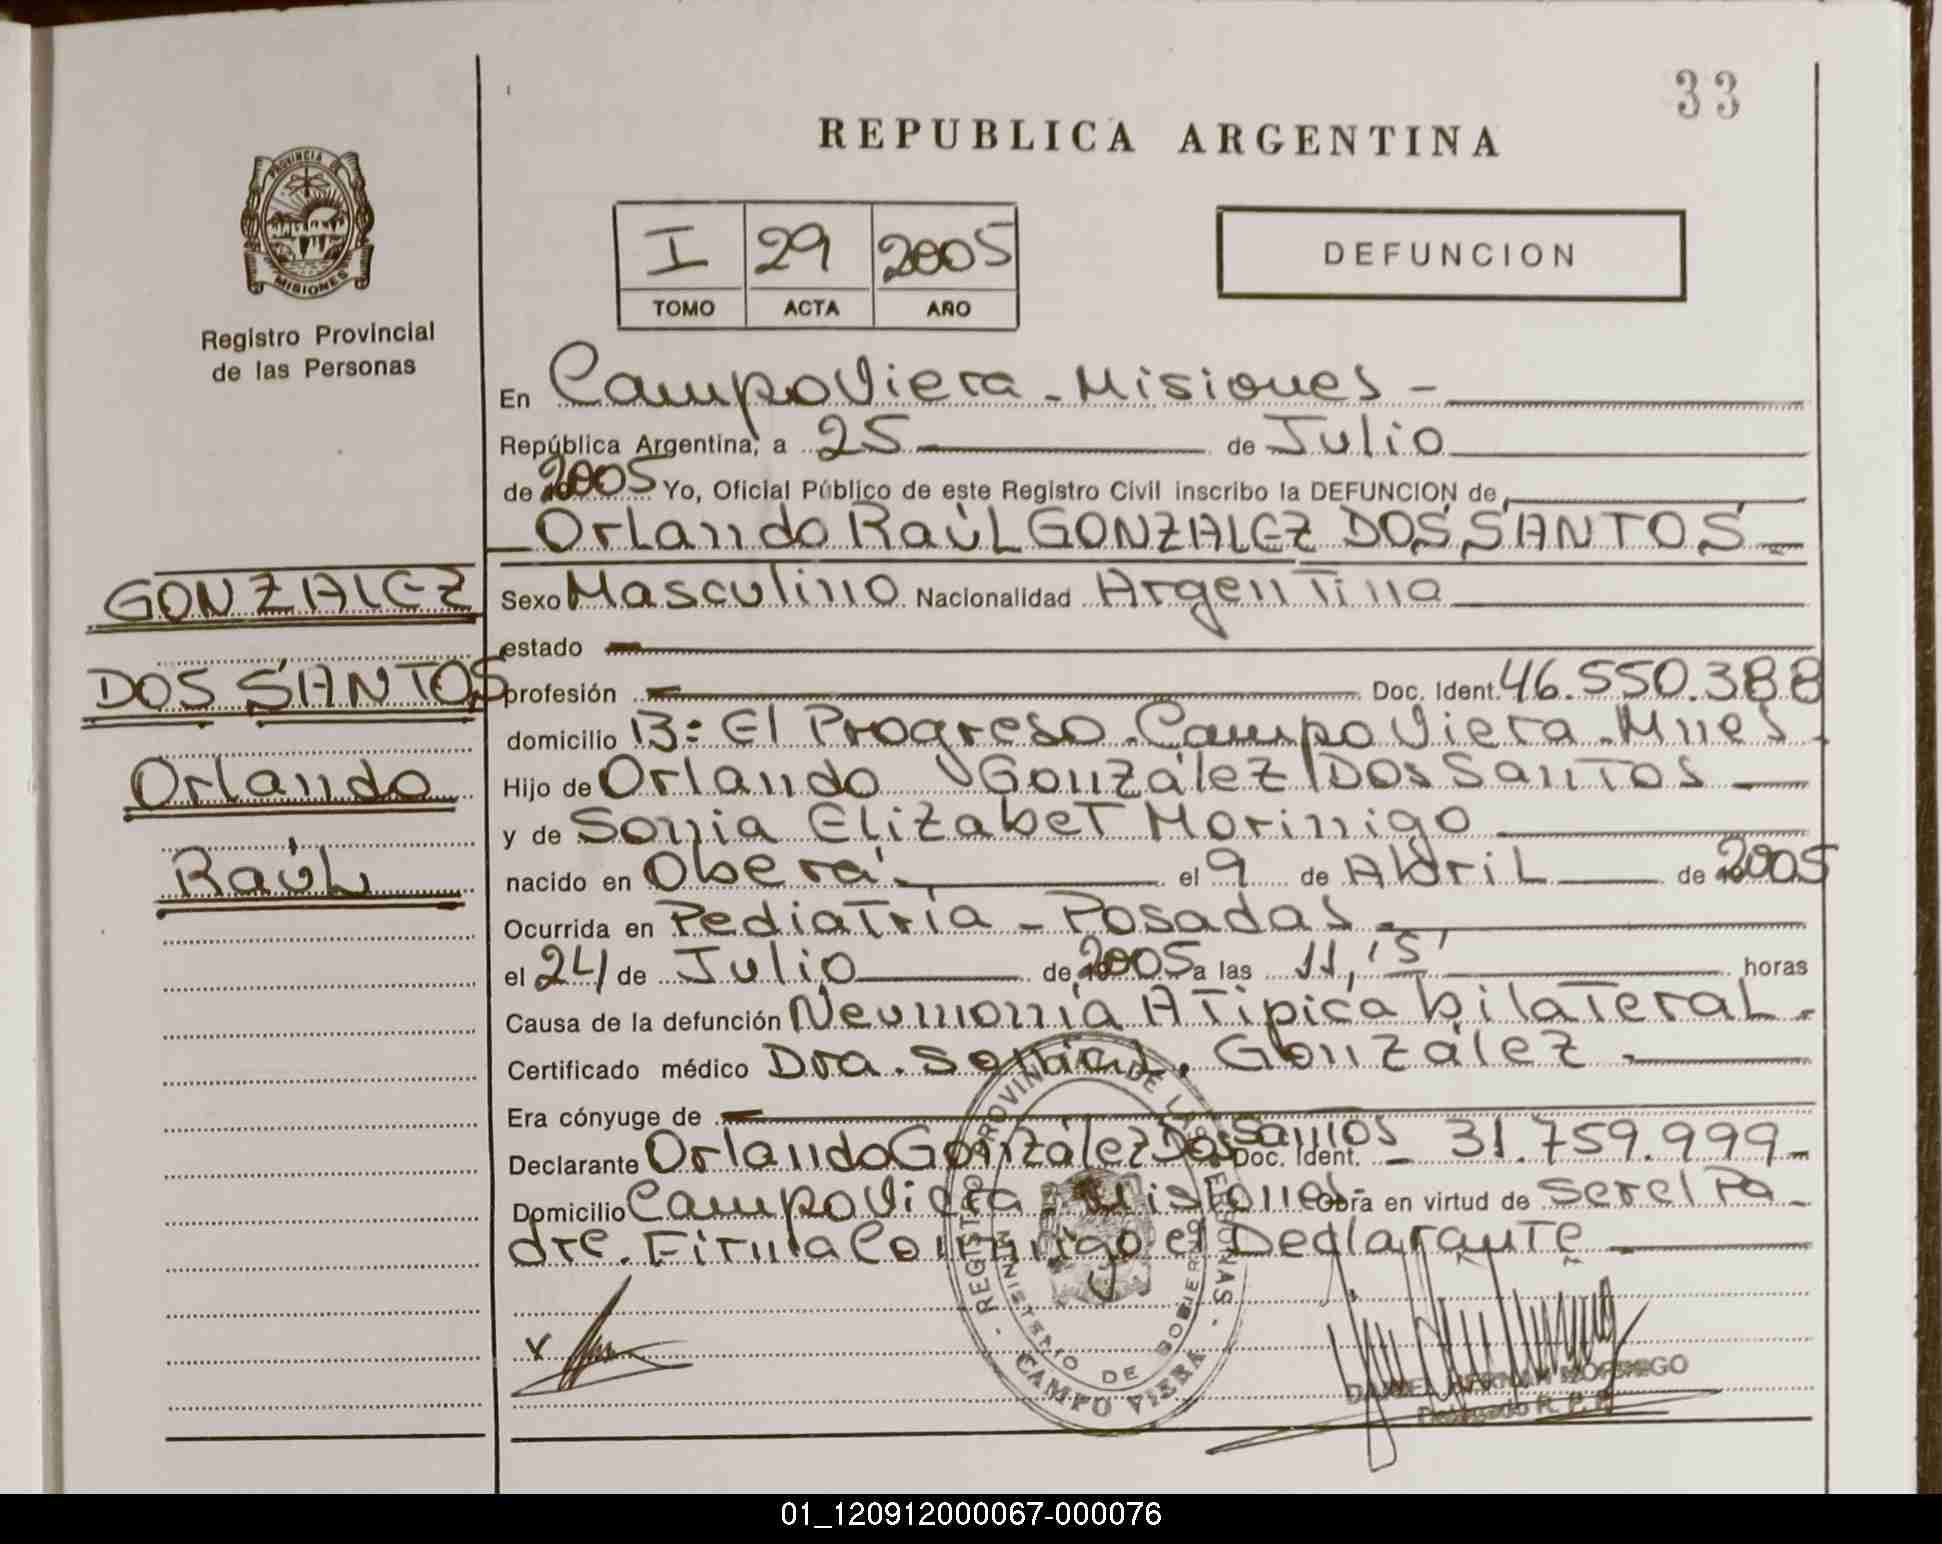 33
REPUBLICA ARGENTINA
PROVINCIA DE
MISIONES
Registro Provincial
de las Personas
I 29 2005
TOMO ACTA AÑO
DEFUNCION
En Campo Viera - Misiones -
República Argentina, a 25 de Julio
de 2005 Yo, Oficial Público de este Registro Civil inscribo la DEFUNCION de
Orlando Raúl GONZALEZ DOS SANTOS
GONZALEZ
DOS SANTOS
Orlando
Raúl
Sexo Masculino Nacionalidad Argentina
estado
profesión Doc. Ident. 46.550.388
domicilio B: El Progreso - Campo Viera - Mnes.
Hijo de Orlando González Dos Santos
y de Sonia Elizabet Morinigo
nacido en Oberá el 9 de Abril de 2005
Ocurrida en Pediatría - Posadas -
el 24 de Julio de 2005 a las 11,15' horas
Causa de la defunción Neumonía Atípica bilateral.
Certificado médico Dra. Sonia L. González -
Era cónyuge de
Declarante Orlando González Dos Santos Doc. Ident. - 31.759.999 -
Domicilio Campo Viera - Misiones - Obra en virtud de ser el Pa-
dre. Firma Conmigo el Declarante
REGISTRO PROVINCIAL DE LAS PERSONAS
MINISTERIO DE GOBIERNO
CAMPO VIERA
Delegado R. P. P.
01_120912000067-000076